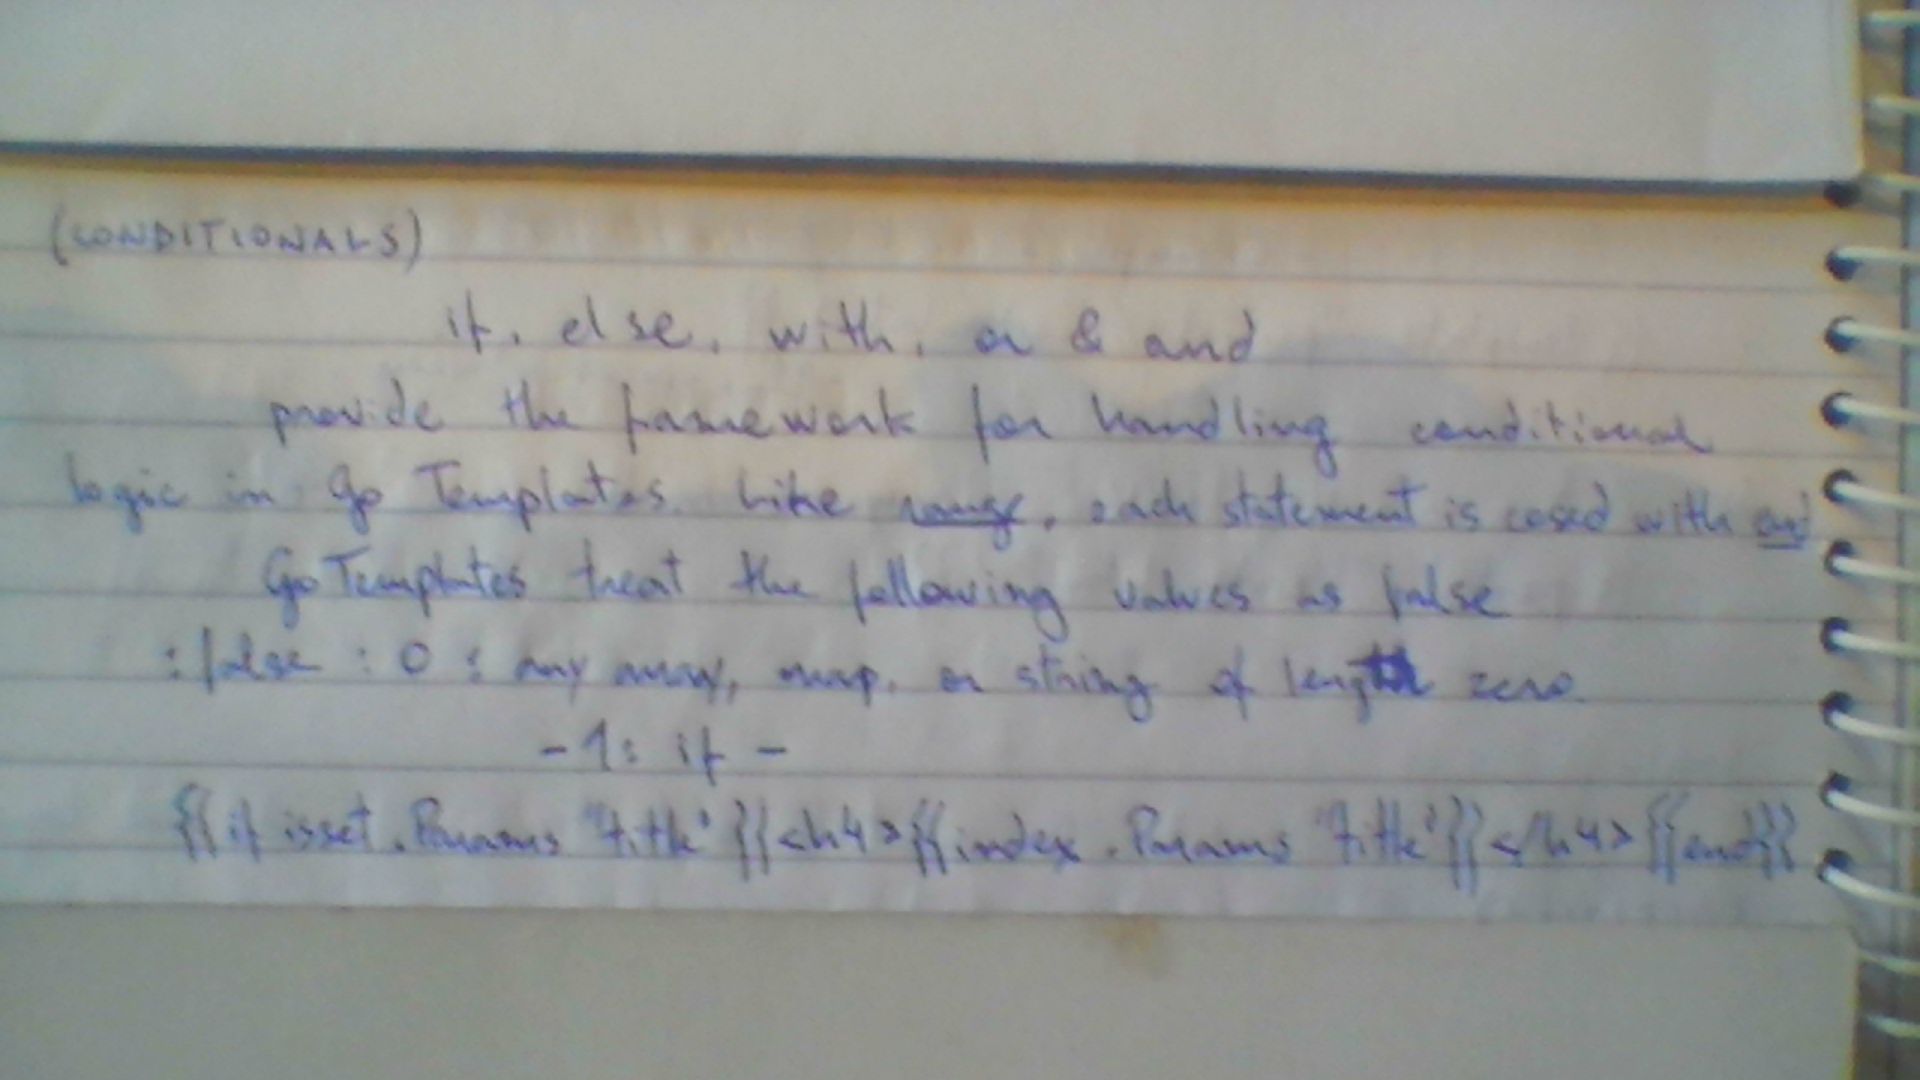 (CONDITIONALS)
if, else, with, or & and
provide the framework for handling conditional
logic in Go Templates. Like range, each statement is cosed with end
Go Templates treat the following values as false
: false : 0 : any array, map, or string of length zero.
- 1: if -
{{if isset .Params "title" }}<h4>{{index .Params "title"}}</h4>{{end}}